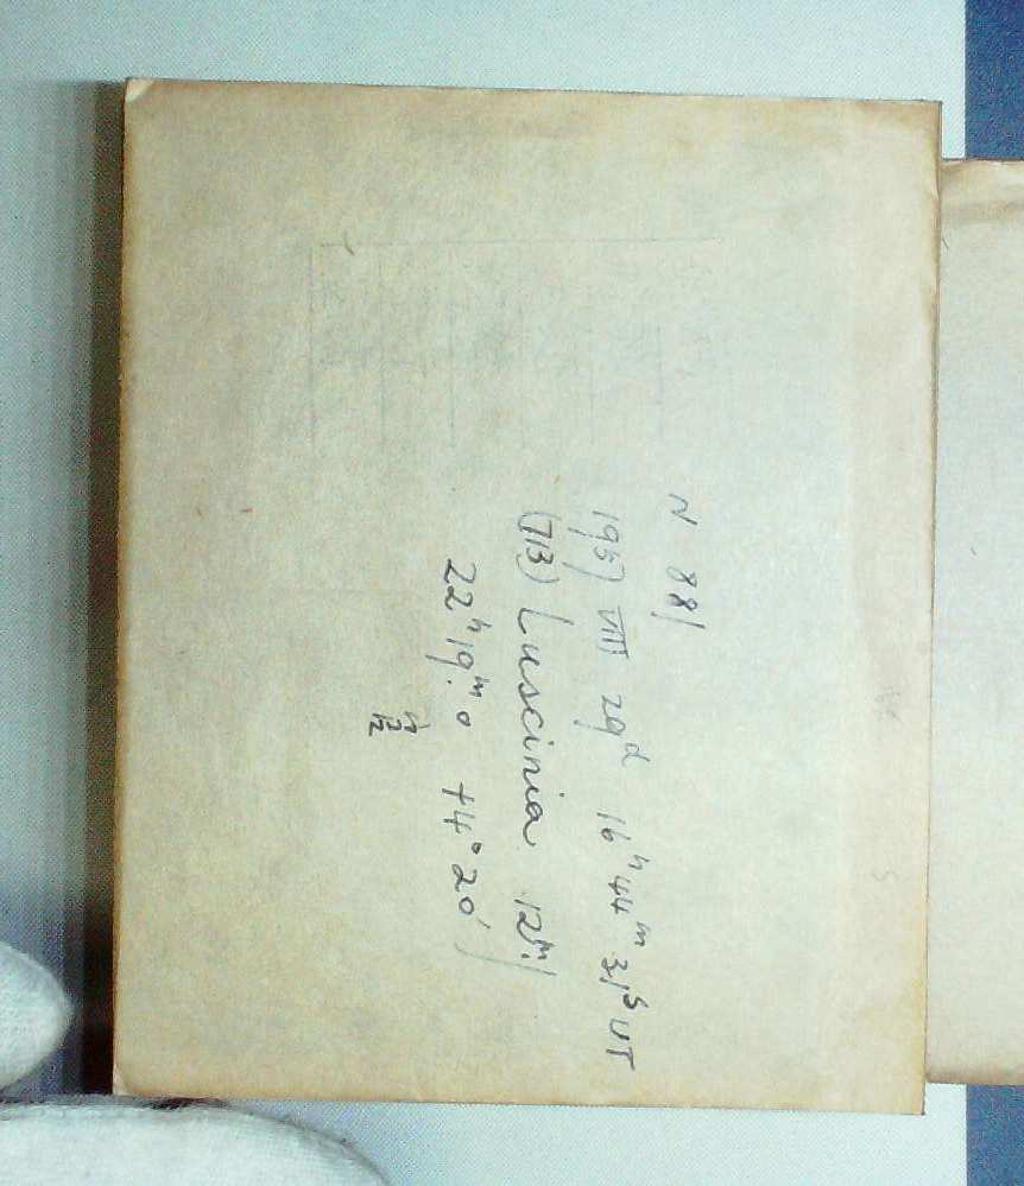 N 881
1957 VIII 29ᵈ 16ʰ44ᵐ31ˢ UT
(713) Luscinia 12ᵐ.1
22ʰ19ᵐ.0 +4°20′